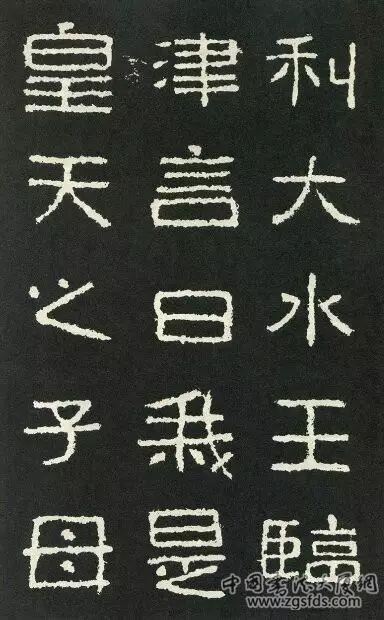 利大水王臨
津言曰我是
皇天之子母
中国书法大师网
www.zgsfds.com